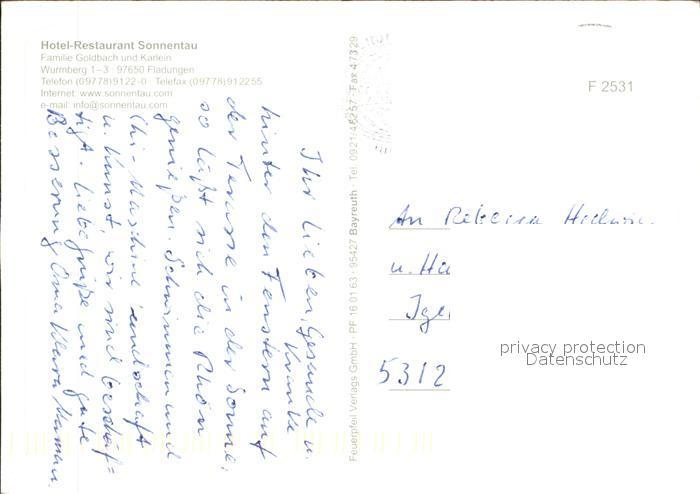 Hotel-Restaurant Sonnentau
Familie Goldbach und Karlein
Wurmberg 1–3 · 97650 Fladungen
Telefon (09778)9122-0 · Telefax (09778)912255
Internet: www.sonnentau.com
e-mail: info@sonnentau.com
Ihr Lieben, Gesunde u.
Kranke
hinter den Fenstern auf
der Terasse in der Sonne,
so läßt sich die Rhön
genießen. Schwimmen und
Chi-Maschine Landschaft
u. Kunst, wir sind beschäf=
tigt. Liebe Grüße und gute
Besserung Oma Klara
Feuerpfeil Verlags GmbH · PF 16 01 63 · 95427 Bayreuth · Tel. 0921/46257 · Fax 47329
F 2531
An Rebecca
u. Ha
Ige
5312
privacy protection
Datenschutz